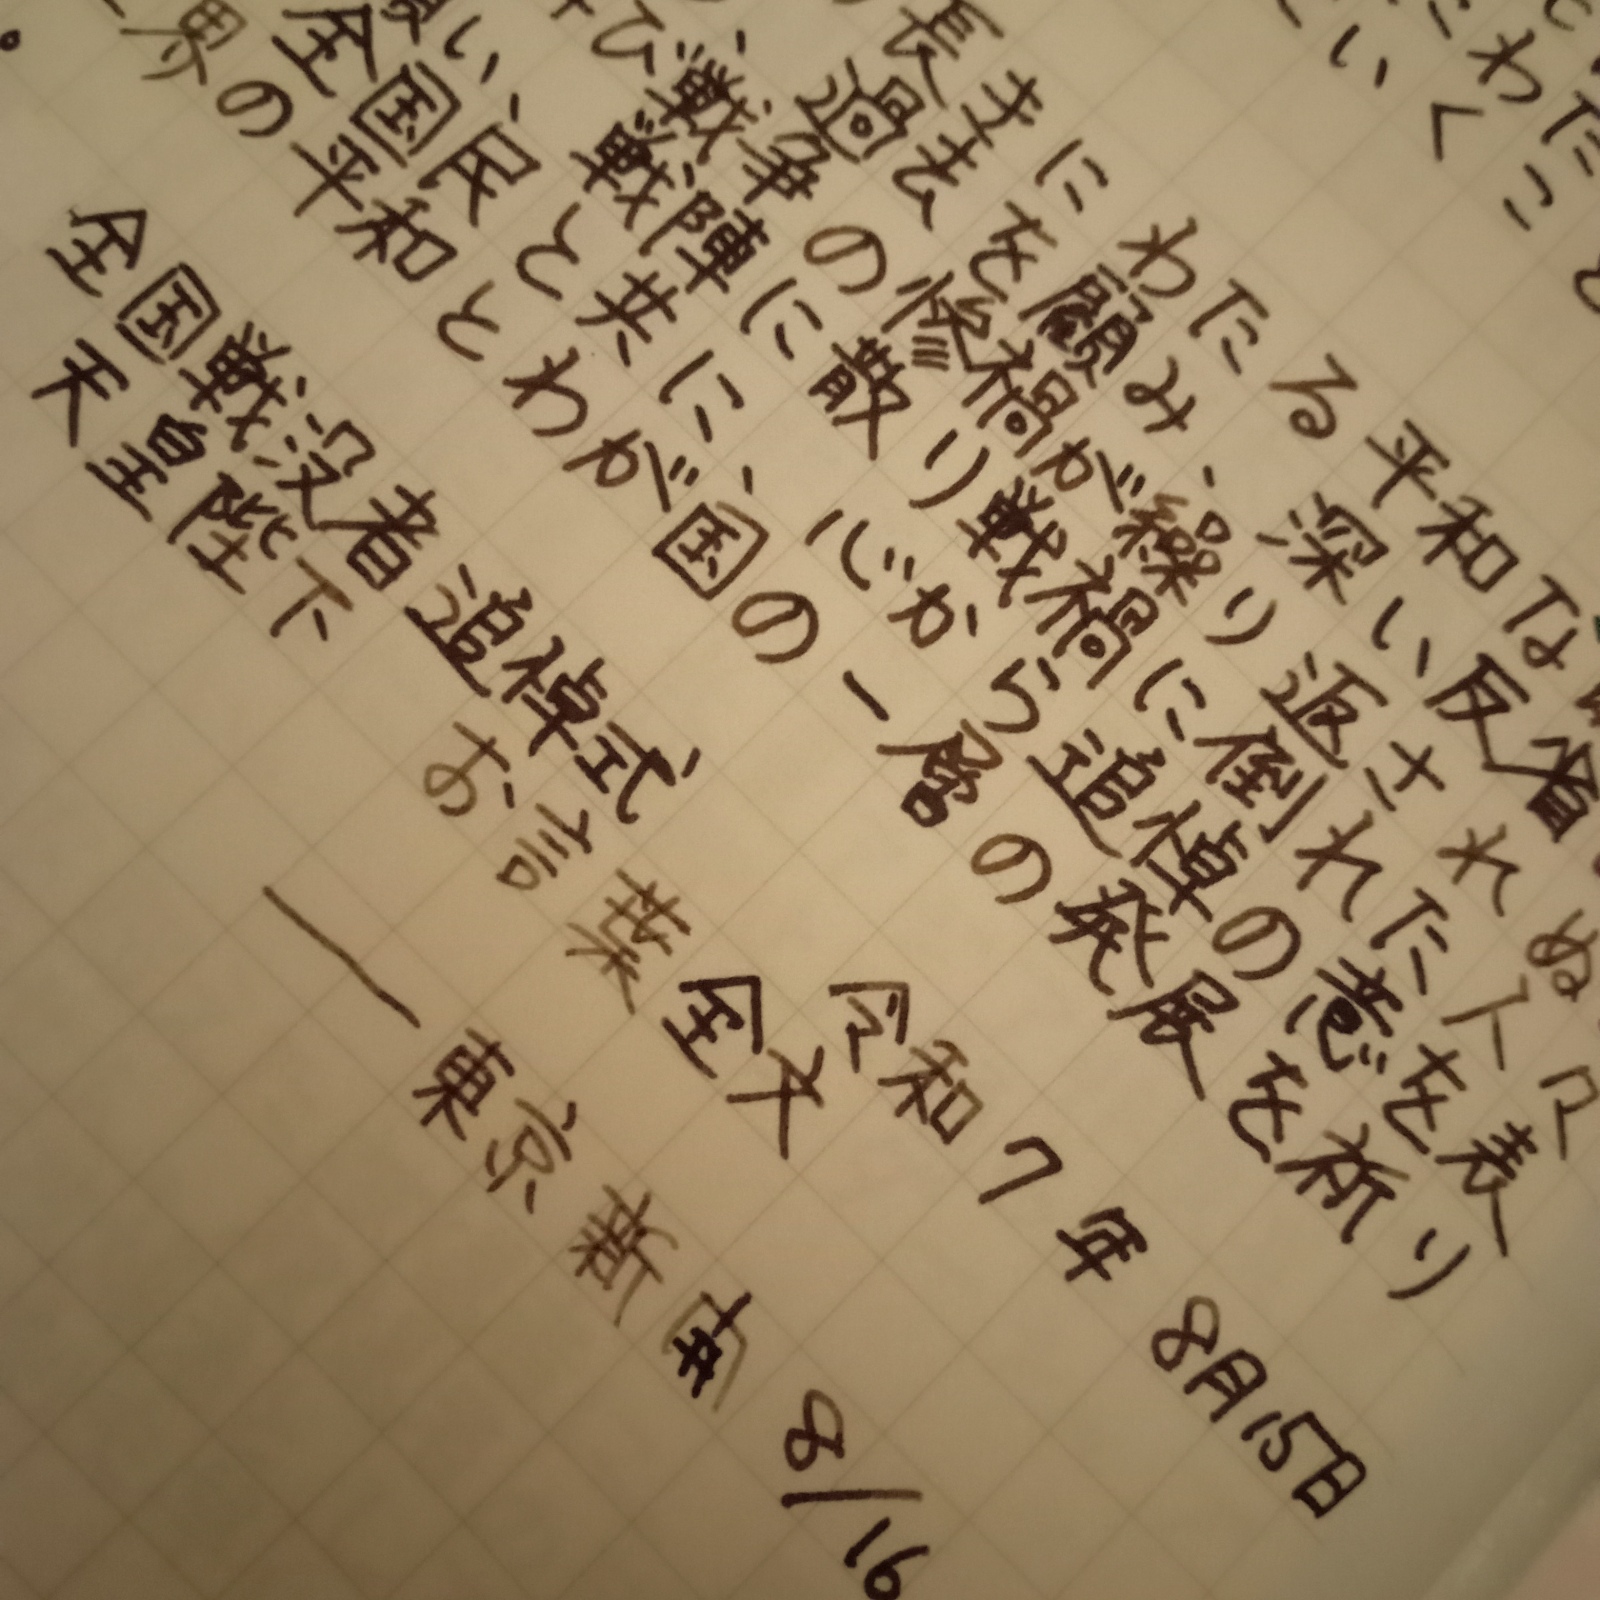 いくこと
長きにわたる平和な
過去を顧み、深い反省
び戦争の惨禍が繰り返されぬ
願い、戦陣に散り戦禍に倒れた人々
全国民と共に、心から追悼の意を表
界の平和とわが国の一層の発展を祈り
。
全国戦没者追悼式 令和7年8月15日
天皇陛下 お言葉全文
― 東京新聞 8/16